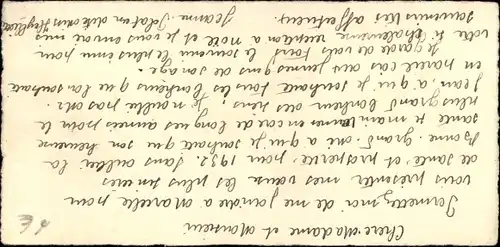 Chère Madame et Monsieur
Permettez moi de me joindre a Marcelle pour
vous présenter mes vœux les plus sincères
de santé, et prospérité, pour 1932. Sans oublier la
Bonne Grand. mère a qui je souhaite que son heureuse
santé se maintienne encor de longues années pour le
plus grand bonheur des siens, je n'oublie pas non.
Jean, a qui je souhaite tous les Bonheurs que l'on souhaite
en pareil cas aux jeunes gens de son age.
Je garde de vous tous le souvenir le plus ému pour
votre si chaleureuse réception a Noël et je vous envoie mes
souvenirs les affectueux.
Jeanne
4€